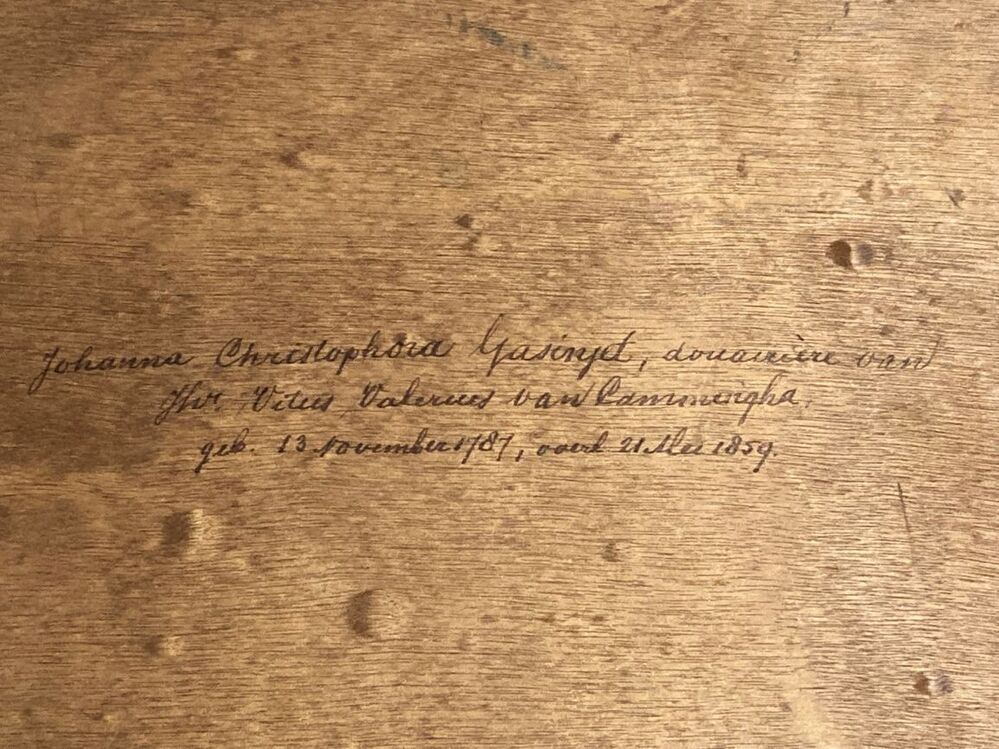 Johanna Christophora Gasinjet, douairière van
Jhr. Vitus Valerius van Cammingha.
geb. 13 November 1787, overl 21 Mei 1859.